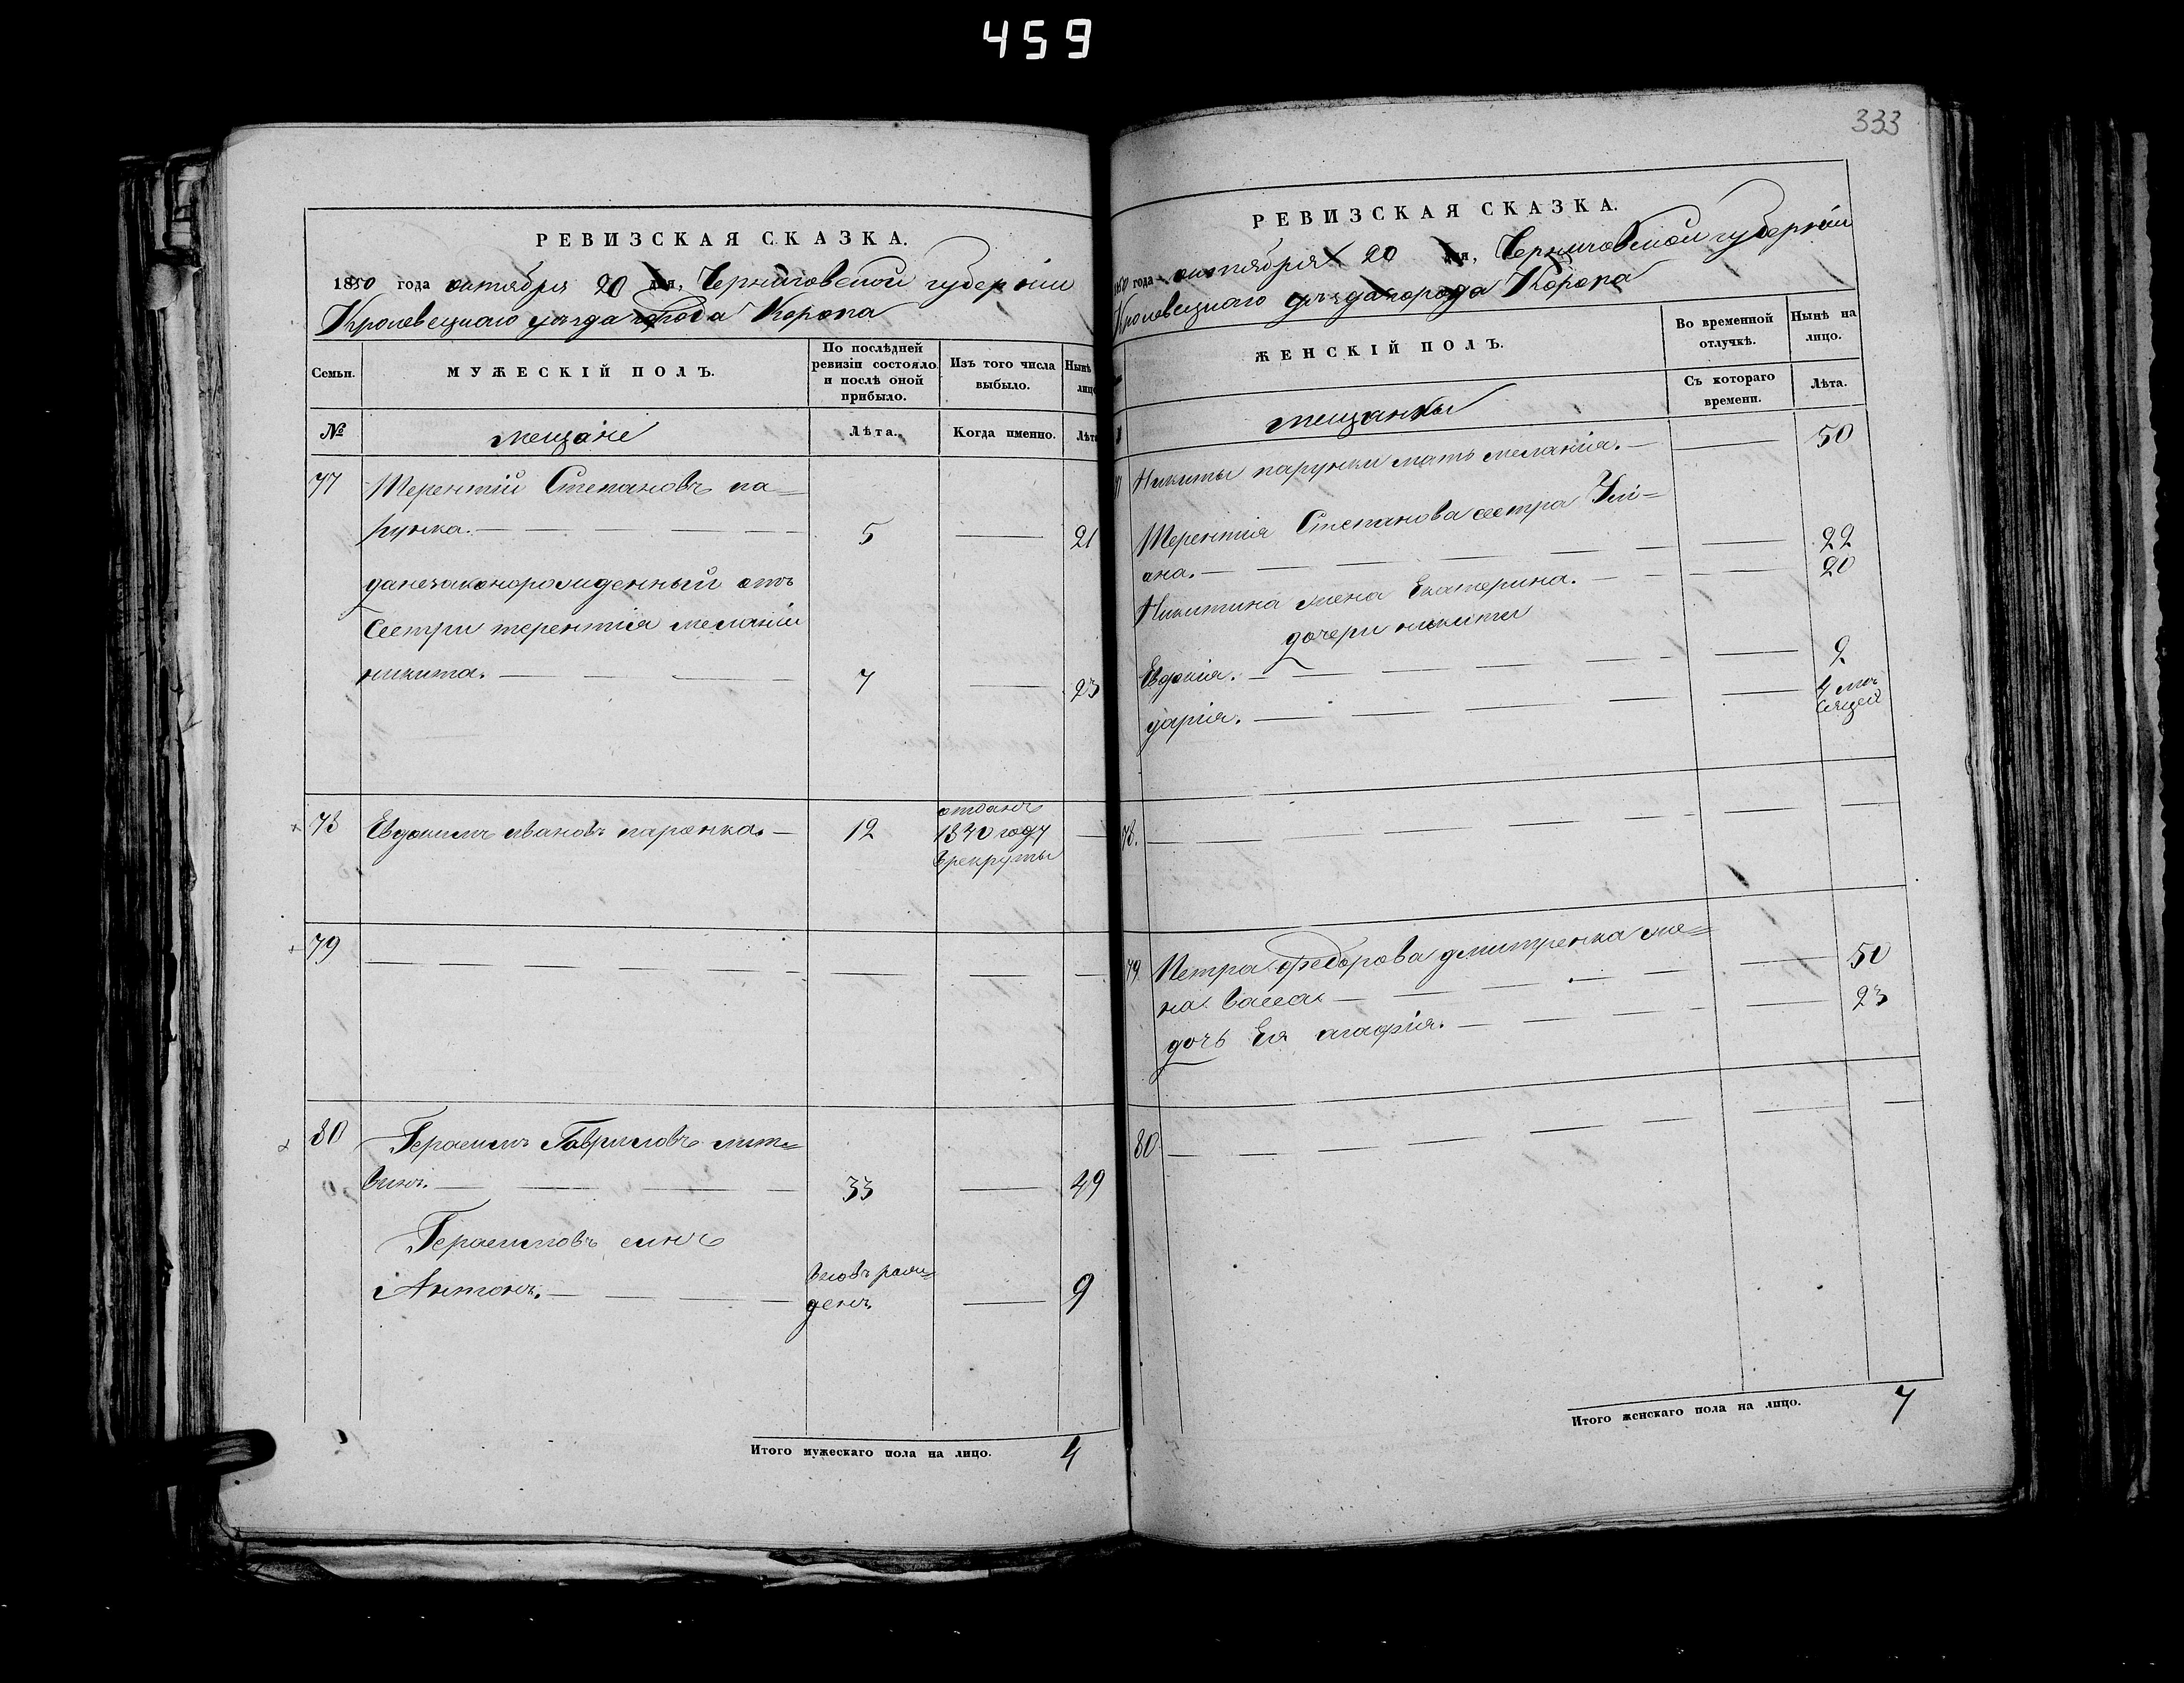 459
333
РЕВИЗСКАЯ СКАЗКА.
1850 года октября 20 дня, Черниговской губернiи
Кролевецкаго уѣзда города Коропа
Семьи.
МУЖЕСКIЙ ПОЛЪ.
По послѣдней ревизiи состояло и послѣ оной прибыло.
Изъ того числа выбыло.
Нынѣ
лицо
№
мещане
Лѣта.
Когда именно.
Лѣта
77 Терентiй Степановъ па=
рунка. 5 21
данезаконорожденный отъ
Сестри терентiя меланiи
никита. 7 23
78 Евдокимъ ивановъ паронка. 12 отданъ
1840 году
врекруты
79
80 Герасимъ Гавриловъ лит=
винъ. 33 49
Герасимовъ синъ
Антонъ. вновь рож=
денъ 9
Итого мужескаго пола на лицо. 4
РЕВИЗСКАЯ СКАЗКА.
1850 года октября 20 дня, Черниговской губернiи
Кролевецкаго уѣзда города Коропа
ЖЕНСКIЙ ПОЛЪ.
Во временной отлучкѣ.
Нынѣ на лицо.
Съ котораго времени.
Лѣта.
мещанки
77 Никиты парунки мать меланiя. 50
Терентiя Степанова сестра Улi=
ана. 22
Никитина жена Екатерина. 20
дочери никити
Евдокiя. 2
дарiя. 4 мѣ
сяцей
78.
79. Петра Федорова дмитренка же=
на васса. 50
дочь Ея агафiя. 23
80
Итого женскаго пола на лицо. 7